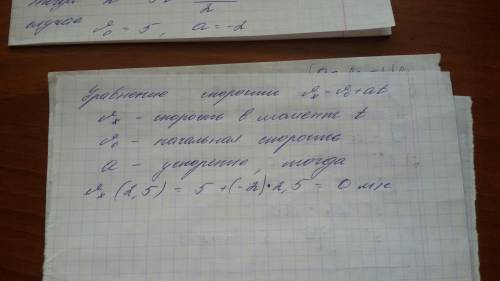 случае ϑ₀ = 5, a = -2
Уравнение скорости ϑₓ = ϑ₀ + at
ϑₓ - скорость в момент t
ϑ₀ - начальная скорость
a - ускорение, тогда
ϑₓ (2,5) = 5 + (-2) • 2,5 = 0 м/с